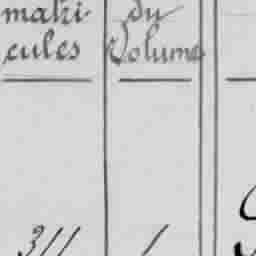 matri-
cules
du
Volume
311
1